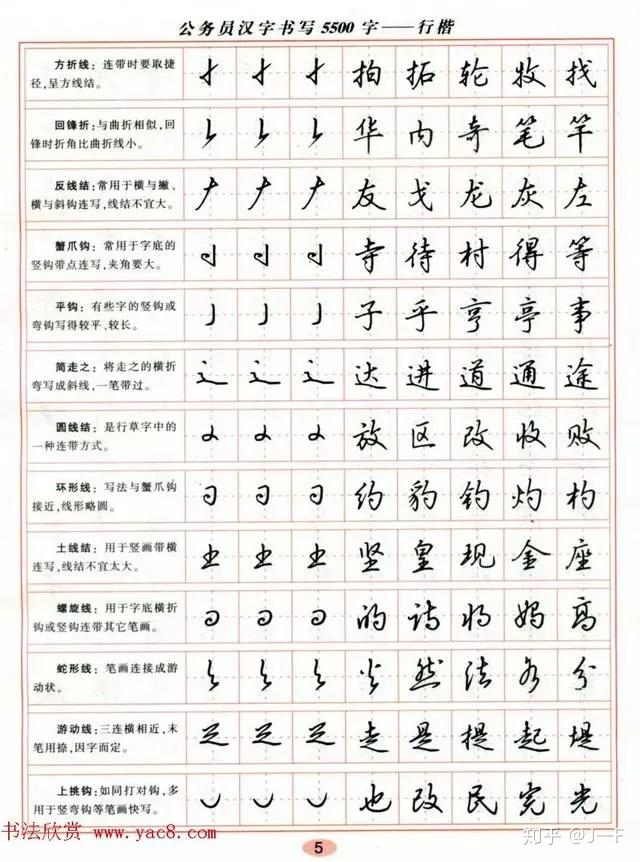 公务员汉字书写5500字——行楷
方折线：连带时要取捷
径,呈方线结。
拍 拓 轮 牧 找
回锋折：与曲折相似,回
锋时折角比曲折线小。
华 内 奇 笔 竿
反线结：常用于横与撇、
横与斜钩连写,线结不宜大。
友 戈 龙 灰 左
蟹爪钩：常用于字底的
竖钩带点连写,夹角要大。
寺 待 村 得 等
平钩：有些字的竖钩或
弯钩写得较平、较长。
子 乎 亨 亭 事
简走之：将走之的横折
弯写成斜线,一笔带过。
达 进 道 通 途
圆线结：是行草字中的
一种连带方式。
放 区 改 收 败
环形线：写法与蟹爪钩
接近,线形略圆。
约 豹 钓 灼 杓
土线结：用于竖画带横
连写,线结不宜太大。
坚 皇 现 金 座
螺旋线：用于字底横折
钩或竖钩连带其它笔画。
的 诗 将 妈 高
蛇形线：笔画连接成游
动状。
然 法 分
游动线：三连横相近,末
笔用捺,因字而定。
走 是 提 起 堤
上挑钩：如同打对钩,多
用于竖弯钩等笔画快写。
也 改 民 完 光
书法欣赏 www.yac8.com
5
知乎